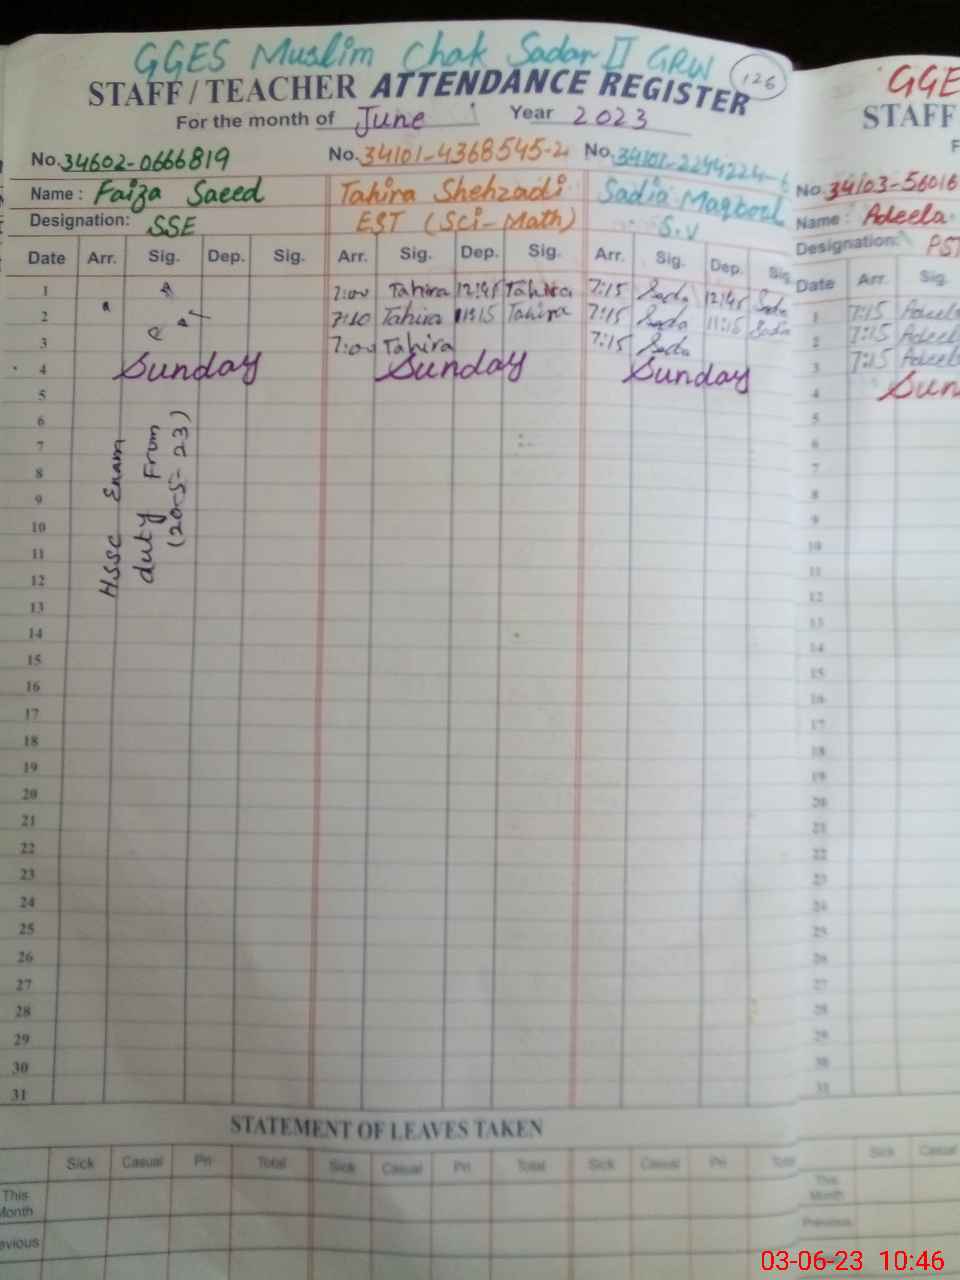 GGES Muslim Chak Sadar II GRW
STAFF / TEACHER ATTENDANCE REGISTER
126
For the month of June Year 2023
No. 34602-0666819 No. 34101-4368545-2 No. 34101-2244224-6
Name : Faiza Saeed Tahira Shehzadi Sadia Maqbool
Designation: SSE EST (Sci-Math) S.V
Date Arr. Sig. Dep. Sig. Arr. Sig. Dep. Sig. Arr. Sig. Dep. Sig.
1 7:00 Tahira 12:45 Tahira 7:15 Sada 12:45 Sada
2 7:10 Tahira 11:15 Tahira 7:15 Sada 11:15 Sada
3 7:00 Tahira 7:15 Sada
4 Sunday Sunday Sunday
5
6
7
8
9
10
11
12
13
14
15
16
17
18
19
20
21
22
23
24
25
26
27
28
29
30
31
HSSC Exam
duty From
(20-5-23)
STATEMENT OF LEAVES TAKEN
Sick Casual Pri Total Sick Casual Pri Total Sick Casual Pri Total
This
Month
evious
GGE
STAFF
F
No. 34103-56016
Name : Adeela
Designation: PST
Date Arr. Sig.
1 7:15 Adeel
2 7:15 Adeel
3 7:15 Adeel
4 Sun
5
6
7
8
9
10
11
12
13
14
15
16
17
18
19
20
21
22
23
24
25
26
27
28
29
30
31
Sick Casual
This
Month
Previous
03-06-23 10:46